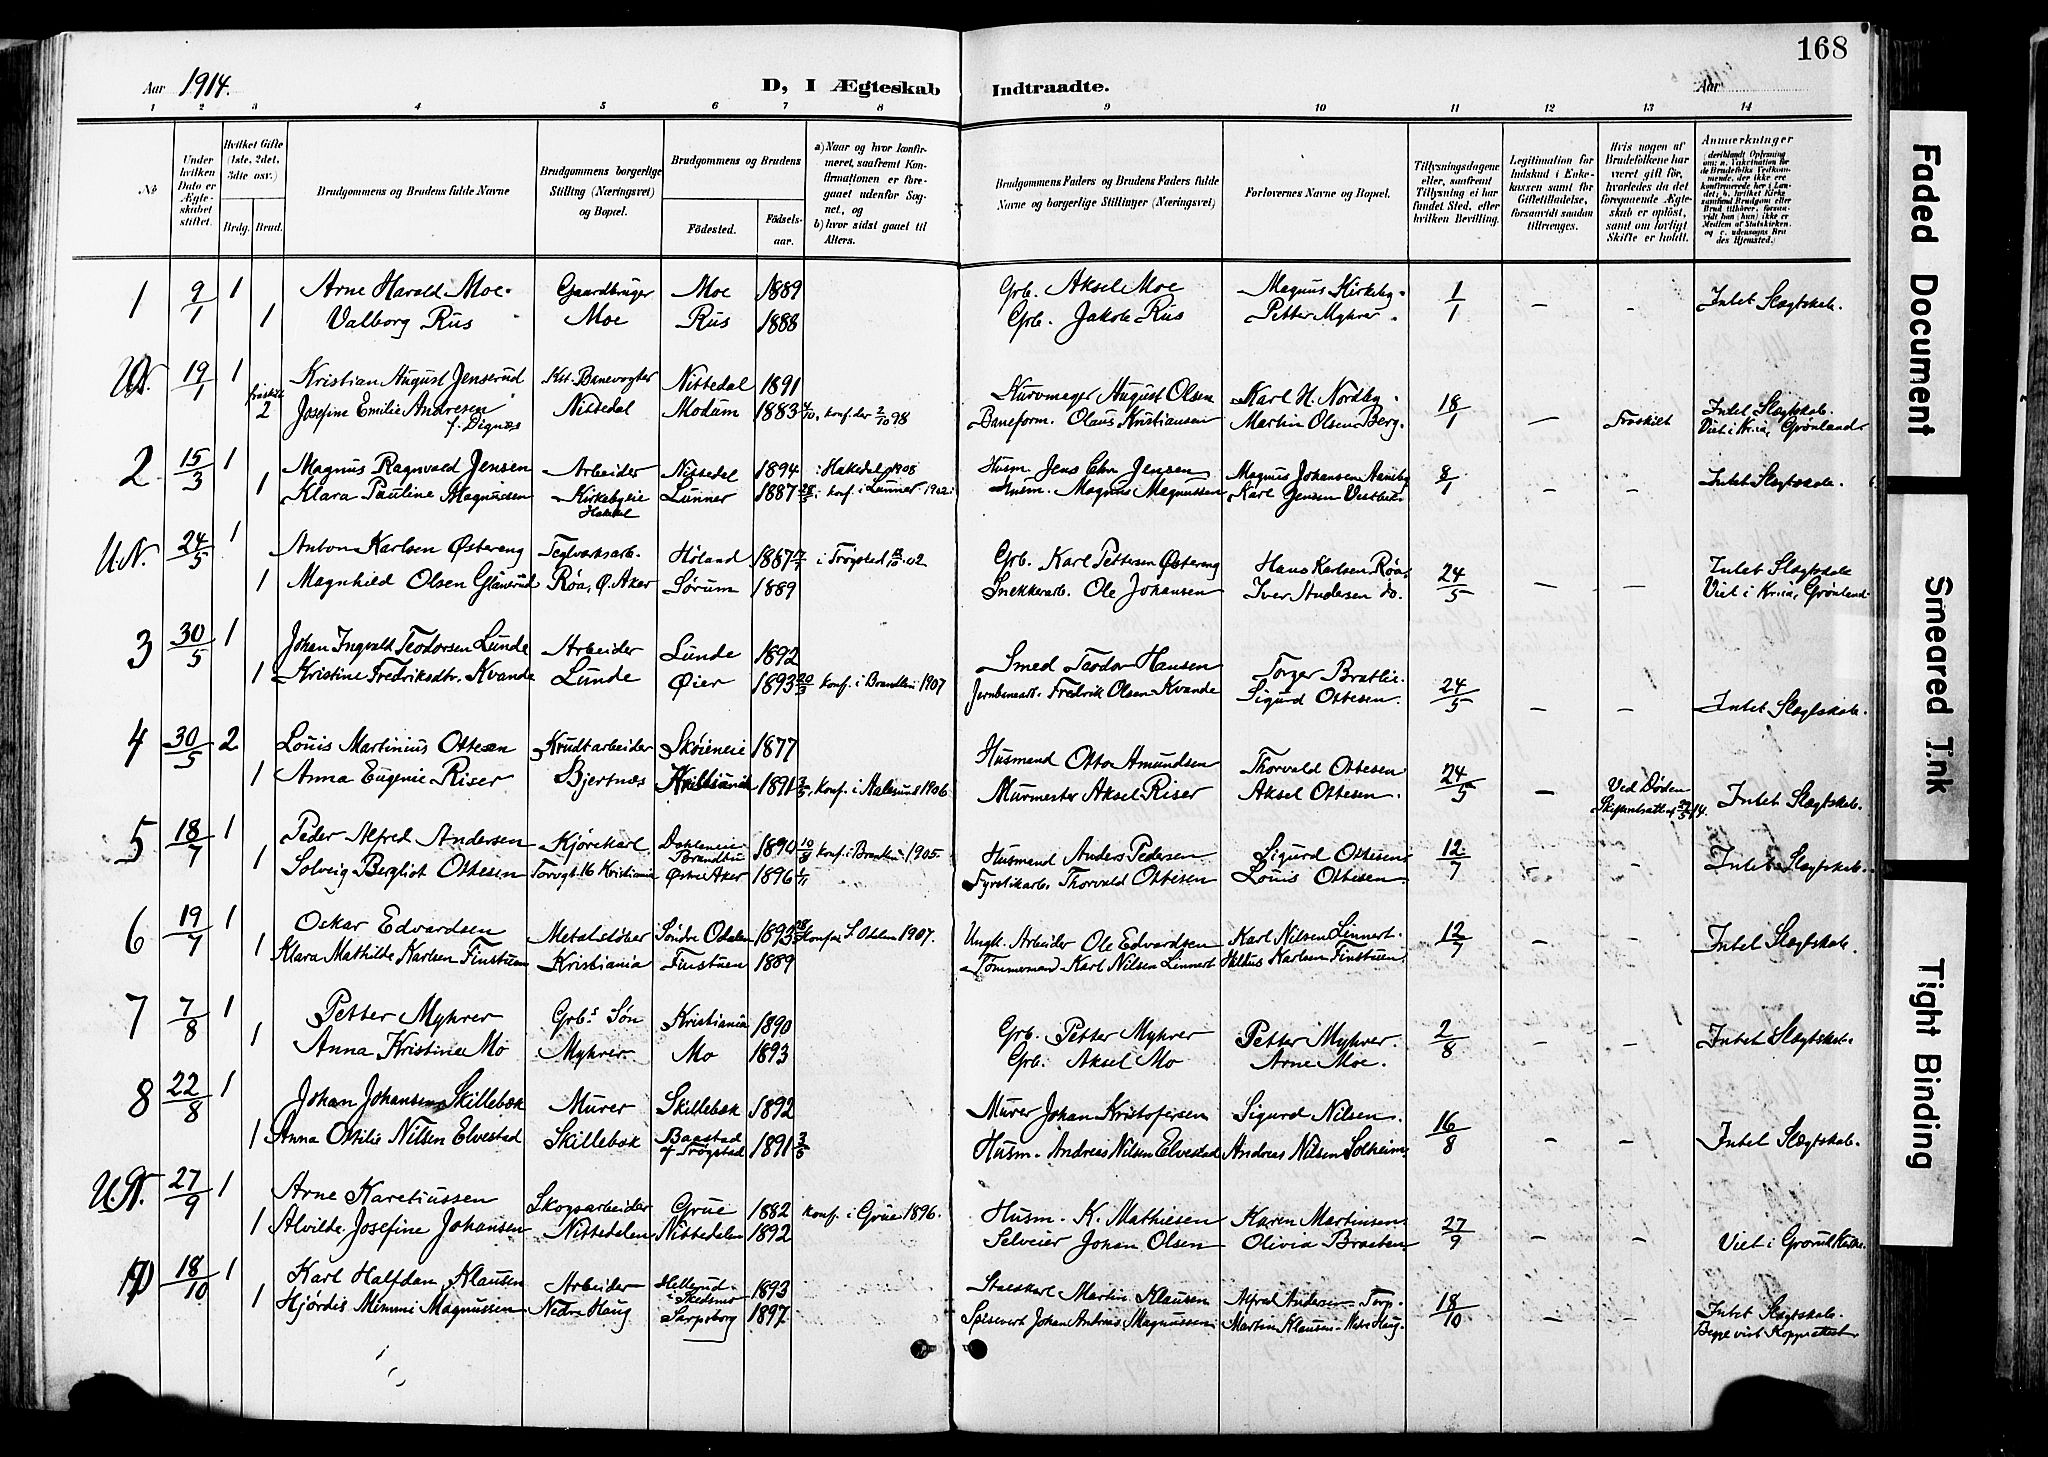 168
Aar 1914.
D, I Ægteskab Indtraadte.
Aar
1 2 3 4 5 6 7 8 9 10 11 12 13 14
No
Under hvilken Dato er Ægteskabet stiftet.
Hvilket Gifte (1ste, 2det, 3die osv.)
Brdg. Brud.
Brudgommens og Brudens fulde Navne
Brudgommens borgerlige Stilling (Næringsvei) og Bopæl.
Brudgommens og Brudens
Födested. Födselsaar.
a) Naar og hvor konfirmeret, saafremt Konfirmationen er foregaaet udenfor Sognet, og
b) hvor sidst gaaet til Alters.
Brudgommens Faders og Brudens Faders fulde Navne og borgerlige Stillinger (Næringsvei)
Forlovernes Navne og Bopæl.
Tillysningsdagene eller, saafremt Tillysning ei har fundet Sted, efter hvilken Bevilling.
Legitimation for Indskud i Enkekassen samt for Giftetilladelse, forsaavidt saadan tiltrænges.
Hvis nogen af Brudefolkene har været gift før, hvorledes da det foregaaende Ægteskab er opløst, samt om lovligt Skifte er holdt.
Anmerkninger
1 9/1 1 Arne Harald Moe. Gaardbruger Moe 1889 Grb. Aksel Moe Magnus Kirkeby. 1/1 — — Intet Slægtskab.
1 Valborg Rus Moe Rus 1888 Grb. Jakob Rus Petter Myhrer
U.N. 19/1 1 Kristian August Jenserud Kst. Banevogter Nittedal 1891 Kurvmager August Olsen Karl H. Nordby. 18/1 — Fraskilt Intet Slægtskab.
fraskilt 2 Josefine Emilie Andresen Nittedal Modum 1883 4/10, konf. der 2/10 98 Baneform. Olaus Kristiansen Martin Olsen Berg. Viet i Kr.ia, Grønland.
f. Dignæs
2 15/3 1 Magnus Ragnvald Jensen Arbeider Nittedal 1894 i Hakedal 1908 Husm. Jens Chr. Jensen Magnus Johansen 8/1 — — Intet Slægtskab.
1 Klara Pauline Magnussen Kirkebyeie Lunner 1887 konf. i Lunner 1902. Husm. Magnus Magnussen Karl Jensen
Hakedal
U.N. 24/5 1 Anton Karlsen Østereng Teglverksarb. Høland 1887 i Trøgstad 02 Grb. Karl Pettersen Østereng Hans Karlsen Røa, 24/5 — — Intet Slægtskab
1 Magnhild Olsen Røa, Ø. Aker Sørum 1889 Snekkerarb. Ole Johansen Iver Andersen do. Viet i Kr.ia, Grønland
3 30/5 1 Johan Ingvald Teodorsen Lunde Arbeider Lunde 1892 Smed Teodor Hansen Torger Bratlie. 24/5 — — Intet Slægtskab.
1 Kristine Fredriksdtr. Kvande Lunde Øier 1893 20/3 konf. i Brandbu 1907 Jernbanearb. Fredrik Olsen Kvande Sigurd Ottesen.
4 30/5 2 Louis Martinius Ottesen Krudtarbeider Skøieneie 1877 Husmand Otto Amundsen Thorvald Ottesen 24/5 — Ved Døden Intet Slægtskab.
1 Anna Eugenie Riser Bjertnæs Kristiania 1891 3/5, konf. i Aalesund 1906. Murmester Aksel Riser Aksel Ottesen.
5 18/7 1 Peder Alfred Andersen Kjørekarl. Brandbu 1890 10/8 konf. i Brandbu 1905. Husmand Anders Pedersen Sigurd Ottesen 12/7 — — Intet Slægtskab.
1 Solveig Bergliot Ottesen Torvgt. 16 Kristiania Østre Aker 1896 Fyrstikarb. Thorvald Ottesen Louis Ottesen.
6 19/7 1 Oskar Edvardsen Metalstøber Søndre Odalen 1893 konf. i S. Odalen 1907. Ungk. Arbeider Ole Edvardsen Karl Nilsen Linnert. 12/7 — — Intet Slægtskab.
1 Klara Mathilde Karlsen Finstuen Kristiania Finstuen 1889 Tømmermand Karl Nilsen Linnert Karlsen Finstuen
7 7/8 1 Petter Myhrer Grb.s Søn Kristiania 1890 Grb. Petter Myhrer Petter Myhrer. 2/8 — — Intet Slægtskab.
1 Anna Kristine Mo Myhrer. Mo 1893 Grb. Aksel Mo Arne Moe.
8 22/8 1 Johan Johansen Skillebæk Murer Skillebæk 1892 Murer Johan Kristofersen Sigurd Nilsen. 16/8 — — Intet Slægtskab.
1 Anna Ottilie Nilsen Elvestad Skillebæk Baastad af Trøgstad 1891 3/5 Husm. Andreas Nilsen Elvestad Andreas Nilsen Solheim.
U.N. 27/9 1 Arne Karetiussen Skogsarbeider Grue 1882 konf. i Grue 1896. Husm. K. Mathiesen Karen Martinsen 27/9 — — Viet i Grorud Kirke.
1 Alvilde Josefine Johansen Nittedalen Nittedalen 1892 Selveier Johan Olsen Olivia Braaten
18/10 1 Karl Halfdan Klausen Arbeider Hellerud i Skedsmo 1893 Staldkarl Martin Klausen Alfred Andersen Torp. 18/10 — — Intet Slægtskab.
1 Hjørdis Mimmi Magnussen Nedre Haug Sarpsborg 1897 Spisevert Johan Andreas Magnussen Martin Klausen - Nedre Haug. Begge vist Koppeattest
Faded Document
Smeared Ink
Tight Binding